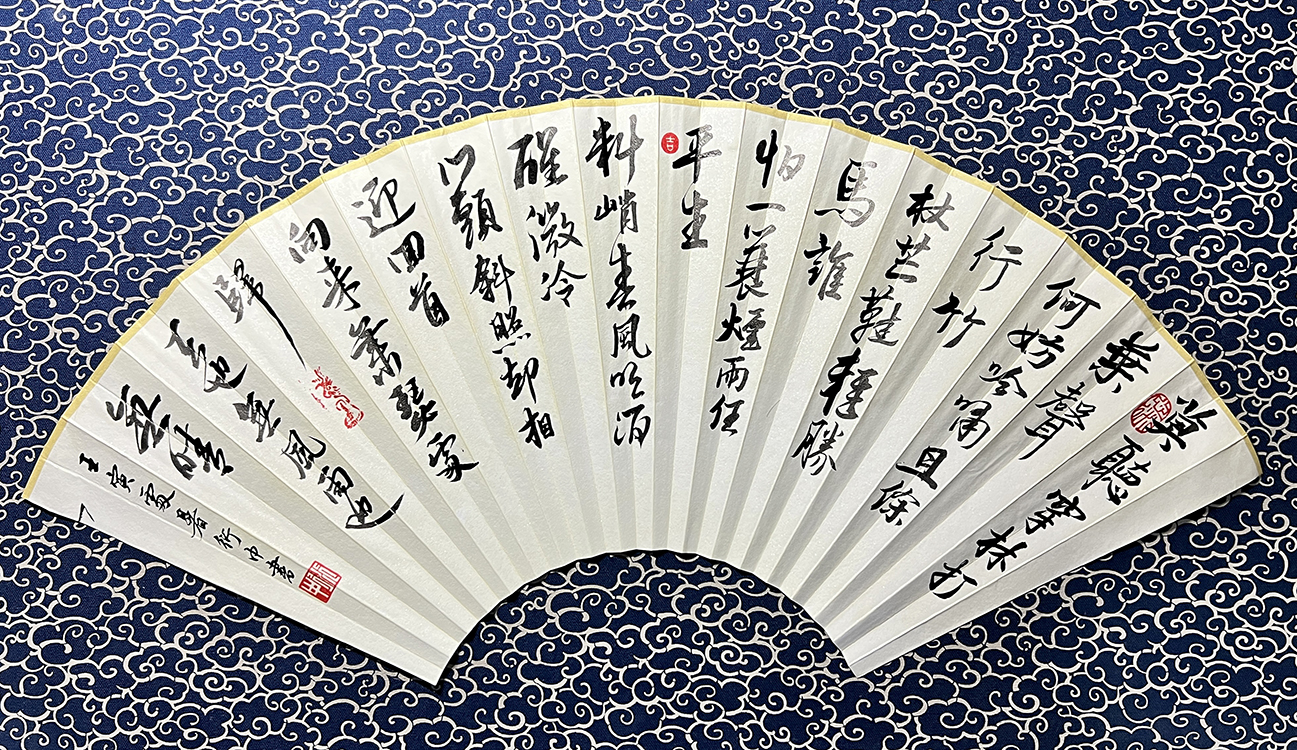 莫聽穿林打
葉聲
何妨吟嘯且徐
行竹
杖芒鞋輕勝
馬誰
怕一蓑煙雨任
平生
料峭春風吹酒
醒微冷
山頭斜照却相
迎回首
向來蕭瑟處
歸
去也無風雨也
無晴
壬寅夏行中書
吉